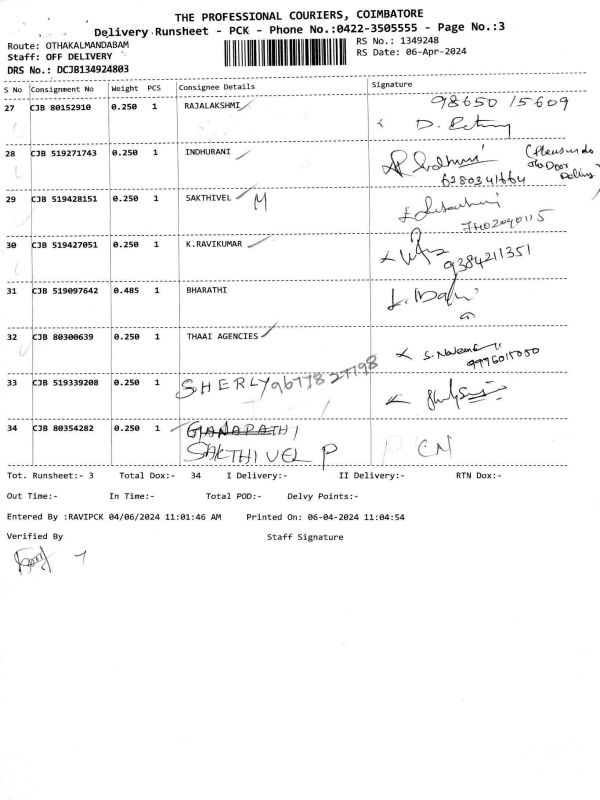 THE PROFESSIONAL COURIERS, COIMBATORE
Delivery Runsheet - PCK - Phone No.:0422-3505555 - Page No.:3
Route: OTHAKALMANDABAM
RS No.: 1349248
Staff: OFF DELIVERY
RS Date: 06-Apr-2024
DRS No.: DCJB134924803
S No Consignment No Weight PCS Consignee Details Signature
27 CJB 80152910 0.250 1 RAJALAKSHMI 98650 15609
28 CJB 519271743 0.250 1 INDHURANI
6280341664
29 CJB 519428151 0.250 1 SAKTHIVEL M
7402040115
30 CJB 519427051 0.250 1 K.RAVIKUMAR
9384211351
31 CJB 519097642 0.485 1 BHARATHI
32 CJB 80300639 0.250 1 THAAI AGENCIES
33 CJB 519339208 0.250 1 SHERLY
34 CJB 80354282 0.250 1 GANAPATHI
SAKTHIVEL P
Tot. Runsheet:- 3 Total Dox:- 34 I Delivery:- II Delivery:- RTN Dox:-
Out Time:- In Time:- Total POD:- Delvy Points:-
Entered By :RAVIPCK 04/06/2024 11:01:46 AM Printed On: 06-04-2024 11:04:54
Verified By Staff Signature